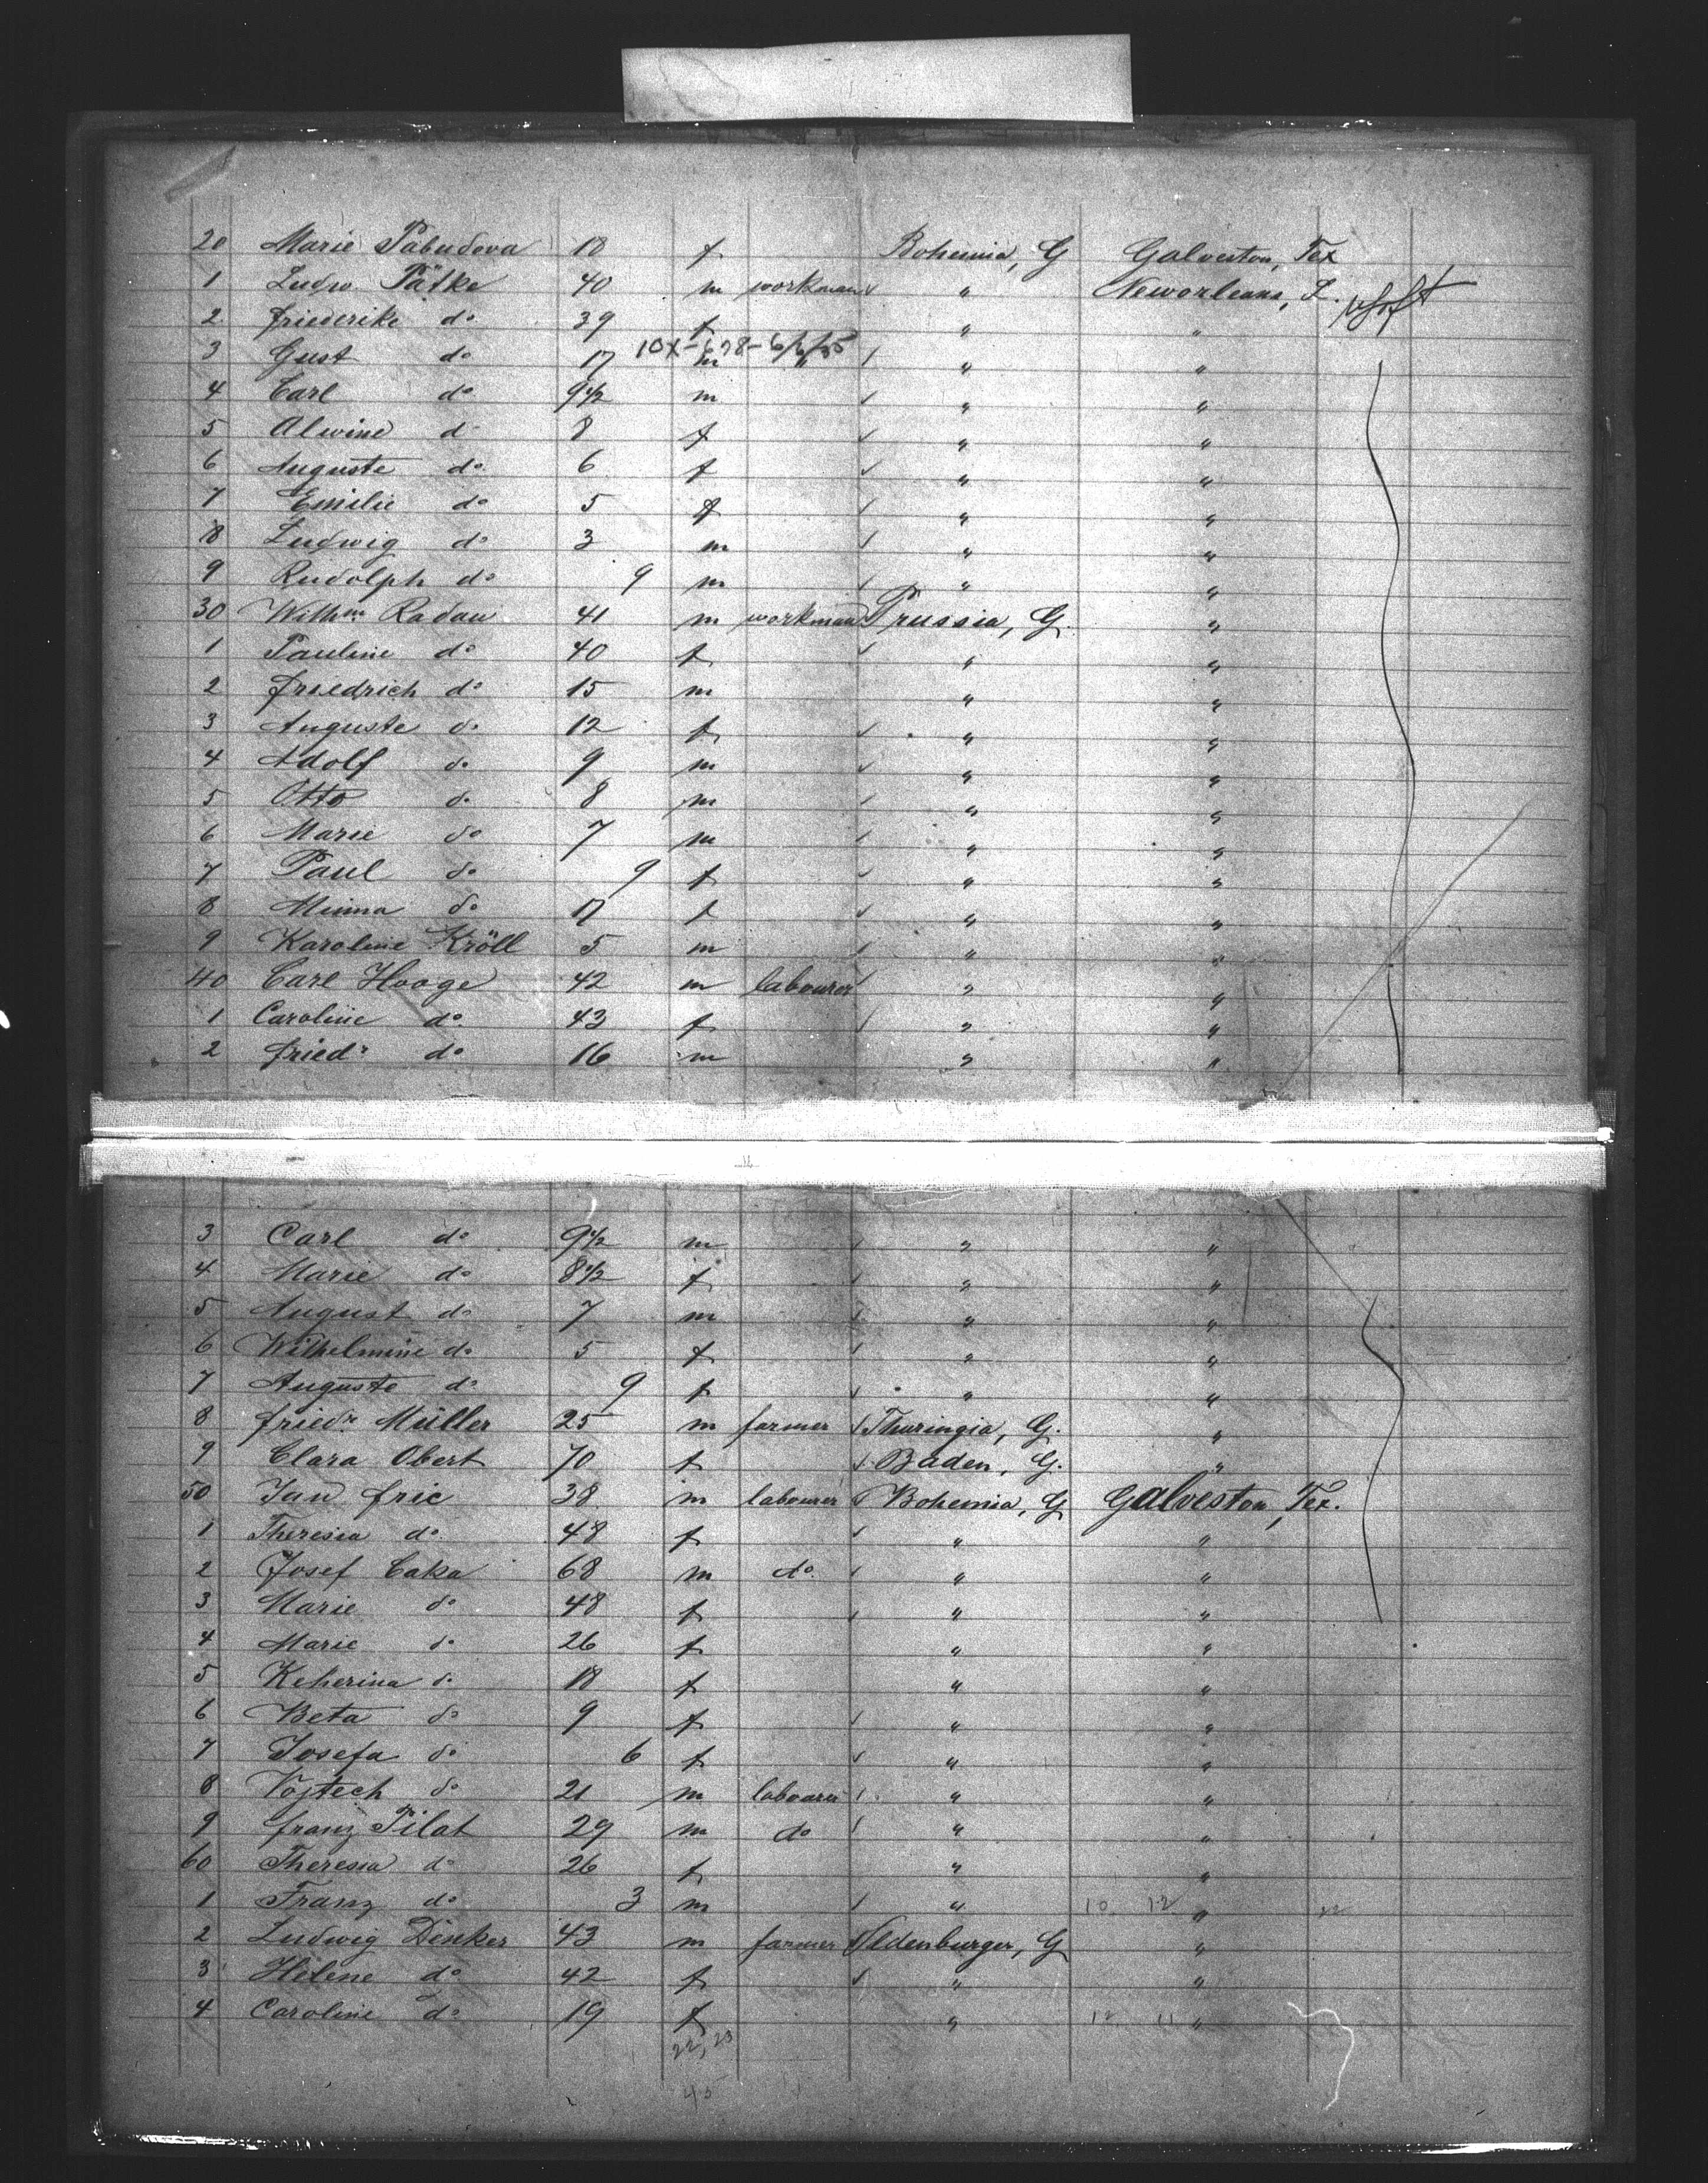 20 Marie Pabudova 18 f Bohemia, G Galveston, Tex
1 Ludw. Pätke 40 m workman " Neworleans, L.
2 Friederike do 39 f " "
10x-678-6/6/55
3 Gust do 17 m " " "
4 Carl do 9 1/2 m " "
5 Alwine do 8 f " "
6 Auguste do 6 f " "
7 Emilie do 5 f " "
8 Ludwig do 3 m " "
9 Rudolph do 9 m " "
30 Wilhm Radau 41 m workman Prussia, G. "
1 Pauline do 40 f " "
2 Friedrich do 15 m " "
3 Auguste do 12 f " "
4 Adolf do 9 m " "
5 Otto do 8 m " "
6 Marie do 7 m " "
7 Paul do 9 f " "
8 Minna do 17 f " "
9 Karoline Kröll 5 m " "
40 Carl Hooge 42 m labourer " "
1 Caroline do 43 f " "
2 Friedr do 16 m " "
3 Carl do 9 1/2 m " "
4 Marie do 8 1/2 f " "
5 August do 7 m " "
6 Wilhelmine do 5 f " "
7 Auguste do 9 f " "
8 Friedr Müller 25 m farmer Thuringia, G. "
9 Clara Obert 70 f Baden, G. "
50 Jan Fric 38 m labourer Bohemia, G Galveston, Tex.
1 Theresia do 48 f " "
2 Josef Caka 68 m do " "
3 Marie do 48 f " "
4 Marie do 26 f " "
5 Keherina do 18 f " "
6 Beta do 9 f " "
7 Josefa do 6 f " "
8 Vojtech do 21 m labourer " "
9 Franz Pilat 29 m do " "
60 Theresia do 26 f " "
1 Franz do 3 m " 10 12 "
2 Ludwig Dinker 43 m farmer Oldenburger, G "
3 Helene do 42 f " "
4 Caroline do 19 f " 12 11 "
22, 23
45